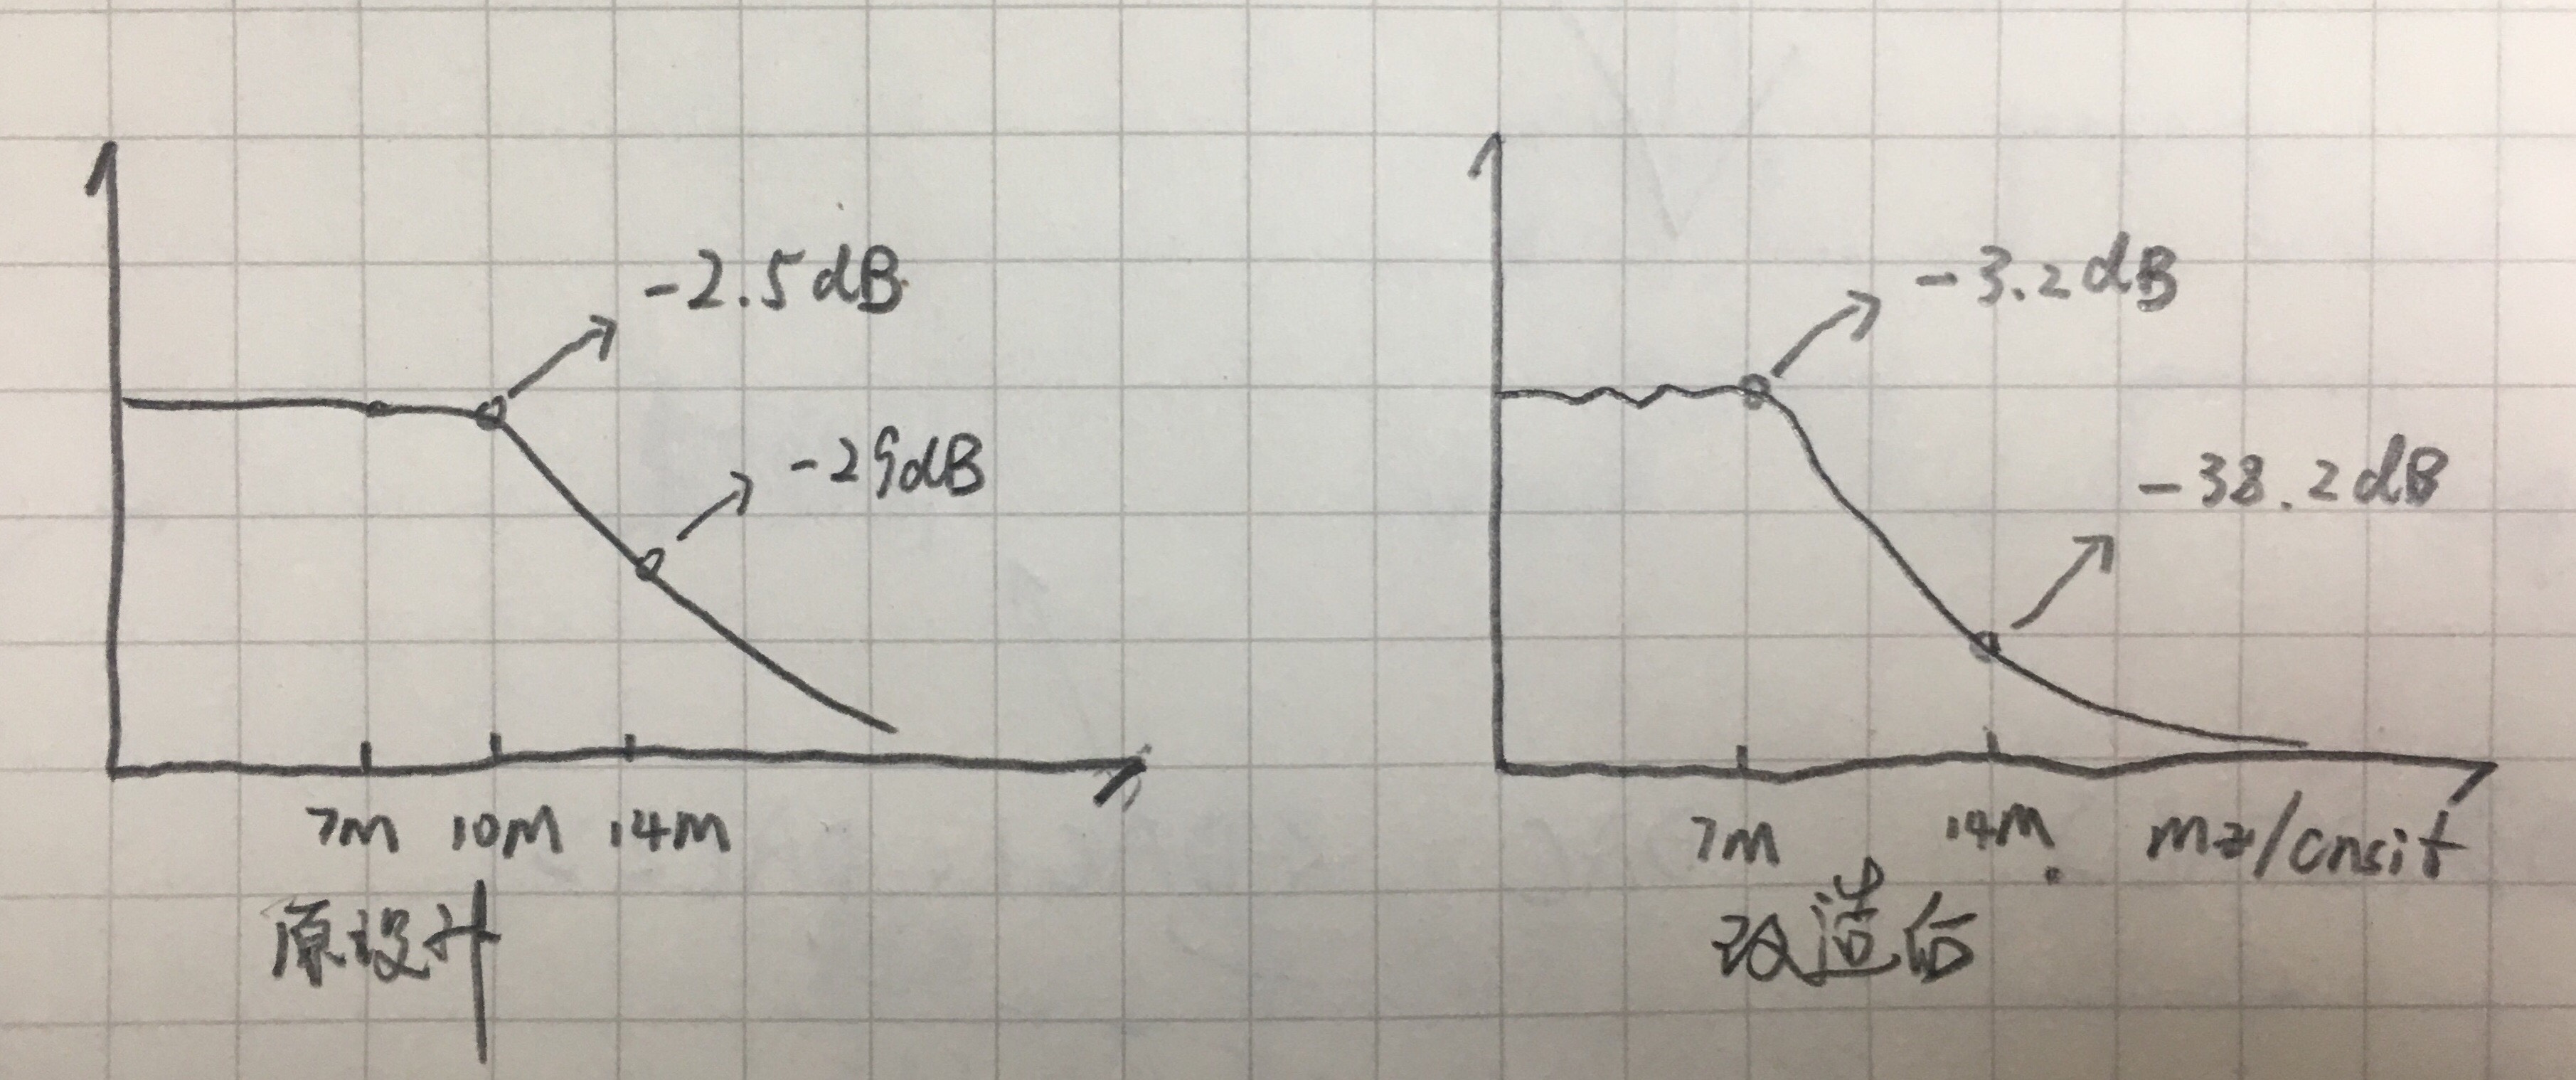 -2.5dB
-29dB
7M 10M 14M
原设计
-3.2dB
-38.2dB
7M 14M. mz/cnsit
改造后